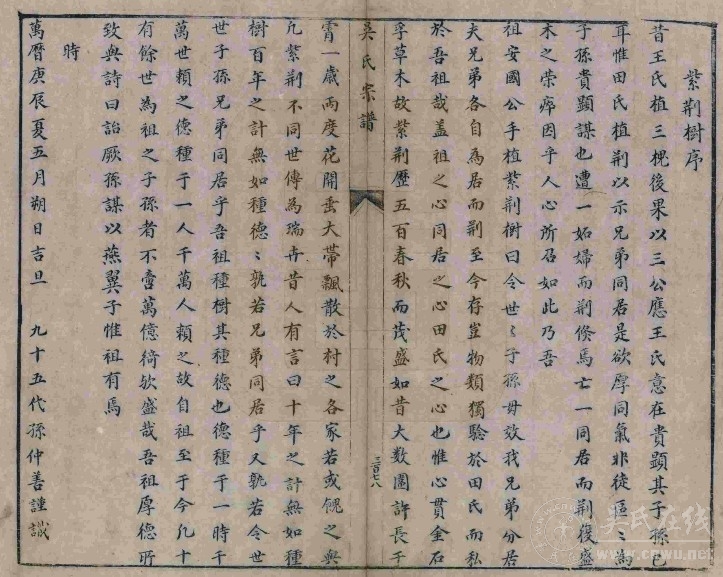 紫荆樹序
昔王氏植三槐後果以三公應王氏意在貴顯其子孫已
耳惟田氏植荆以示兄弟同居是欲厚同氣非徒區〻為
子孫貴顯謀也遭一妬婦而荆倏焉亡一同居而荆復盛
木之榮瘁因乎人心所召如此乃吾
祖安國公手植紫荆樹曰令世〻子孫毋效我兄弟分居
夫兄弟各自為居而荆至今存豈物類獨驗於田氏而私
於吾祖哉盖祖之心同居之心田氏之心也惟心貫金石
孚草木故紫荆歷五百春秋而茂盛如昔大数圍許長千
吴氏宗譜
三百七八
霄一歲兩度花開垂大帶飄散於村之各家若或傀之與
凢紫荆不同世傳為瑞卉昔人有言曰十年之計無如種
樹百年之計無如種德〻孰若兄弟同居乎又孰若令世
世子孫兄弟同居乎吾祖種樹其種德也德種于一時千
萬世頼之德種于一人千萬人頼之故自祖至于今凢十
有餘世為祖之子孫者不啻萬億猗欤盛哉吾祖厚德所
致與詩曰詒厥孫謀以燕翼子惟祖有焉
時
萬曆庚辰夏五月朔日吉旦 九十五代孫仲善謹識
吴氏在线
www.cnwu.net